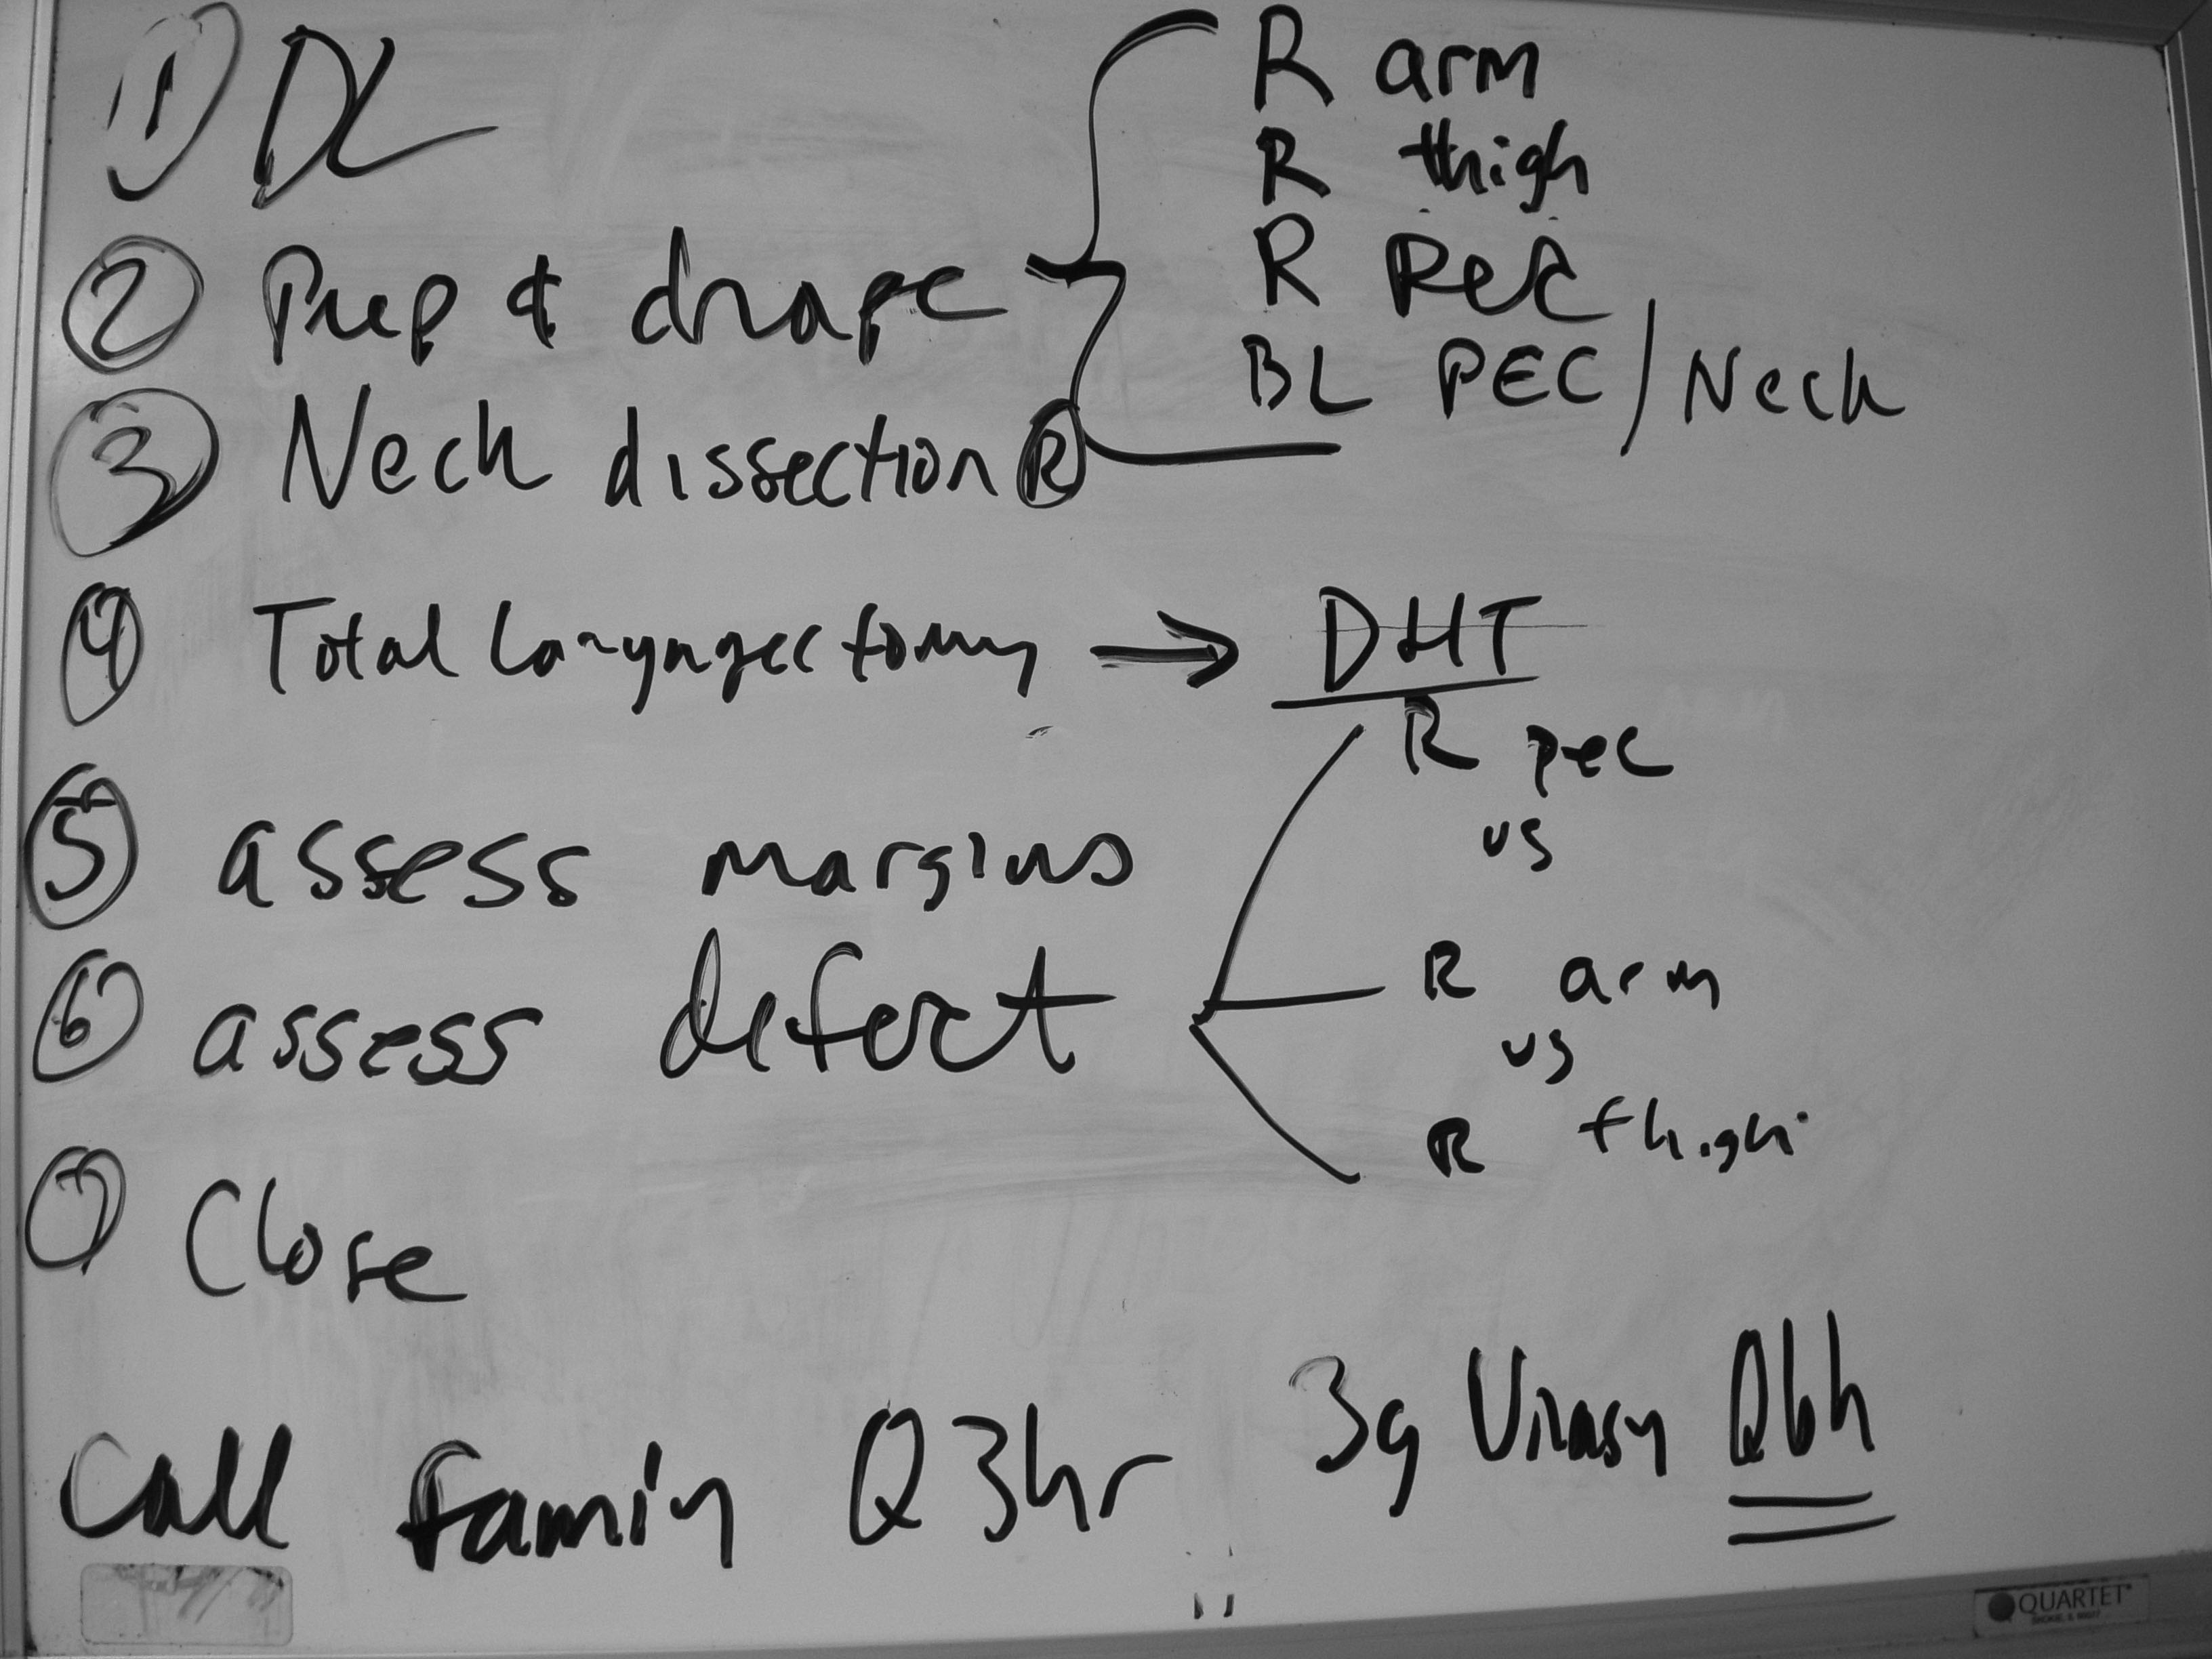 ① DL
② Prep & drape
R arm
R thigh
R Pec
BL PEC/Neck
③ Neck dissection Ⓡ
④ Total laryngectomy → DHT
⑤ assess margins
⑥ assess defect
R pec
vs
R arm
vs
R thigh
⑦ Close
Call family Q3hr
3g Unasyn Q6h
QUARTET